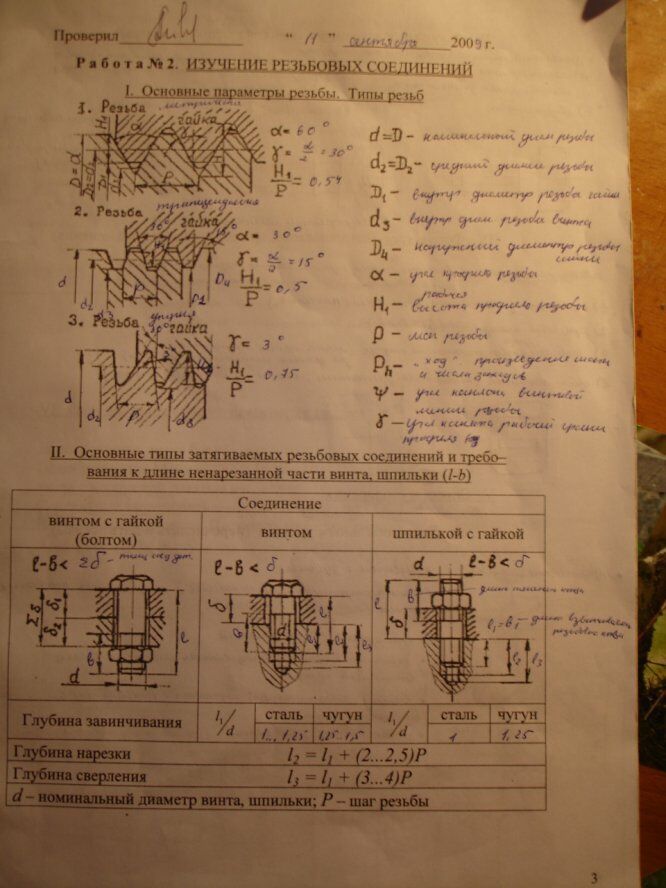 Проверил
" 11 " сентября 2009 г.
Работа № 2. ИЗУЧЕНИЕ РЕЗЬБОВЫХ СОЕДИНЕНИЙ
I. Основные параметры резьбы. Типы резьб
1. Резьба метрическая
гайка
α = 60°
γ = α/2 = 30°
H₁/P = 0,54
2. Резьба трапецеидальная
гайка
30°
α = 30°
γ = α/2 = 15°
H₁/P = 0,5
3. Резьба упорная
гайка
30°
γ = 3°
H₁/P = 0,75
d=D – номинальный диам резьбы
d₂=D₂ – средний диаметр резьбы
D₁ – внутр диаметр резьбы гайки
d₃ – внутр диам резьбы винта
D₄ – наружный диаметр резьбы
α – угол профиля резьбы
H₁ – рабочая высота профиля резьбы
P – шаг резьбы
Pₕ – "ход" произведение шага
и числа заходов
ψ – угол наклона винтовой
линии резьбы
γ – угол наклона рабочей грани
профиля
II. Основные типы затягиваемых резьбовых соединений и требо–
вания к длине ненарезанной части винта, шпильки (l-b)
Соединение
винтом с гайкой
(болтом)
винтом
шпилькой с гайкой
l-в< Σδ
l-в< δ
l-в< δ
l₁=в₁ – длина ввинчиваемого
резьбового конца
Глубина завинчивания
l₁/d
сталь
чугун
1... 1,25
1,25...1,5
l₁/d
сталь
чугун
1
1,25
Глубина нарезки
l₂ = l₁ + (2...2,5)P
Глубина сверления
l₃ = l₁ + (3...4)P
d – номинальный диаметр винта, шпильки; P – шаг резьбы
3